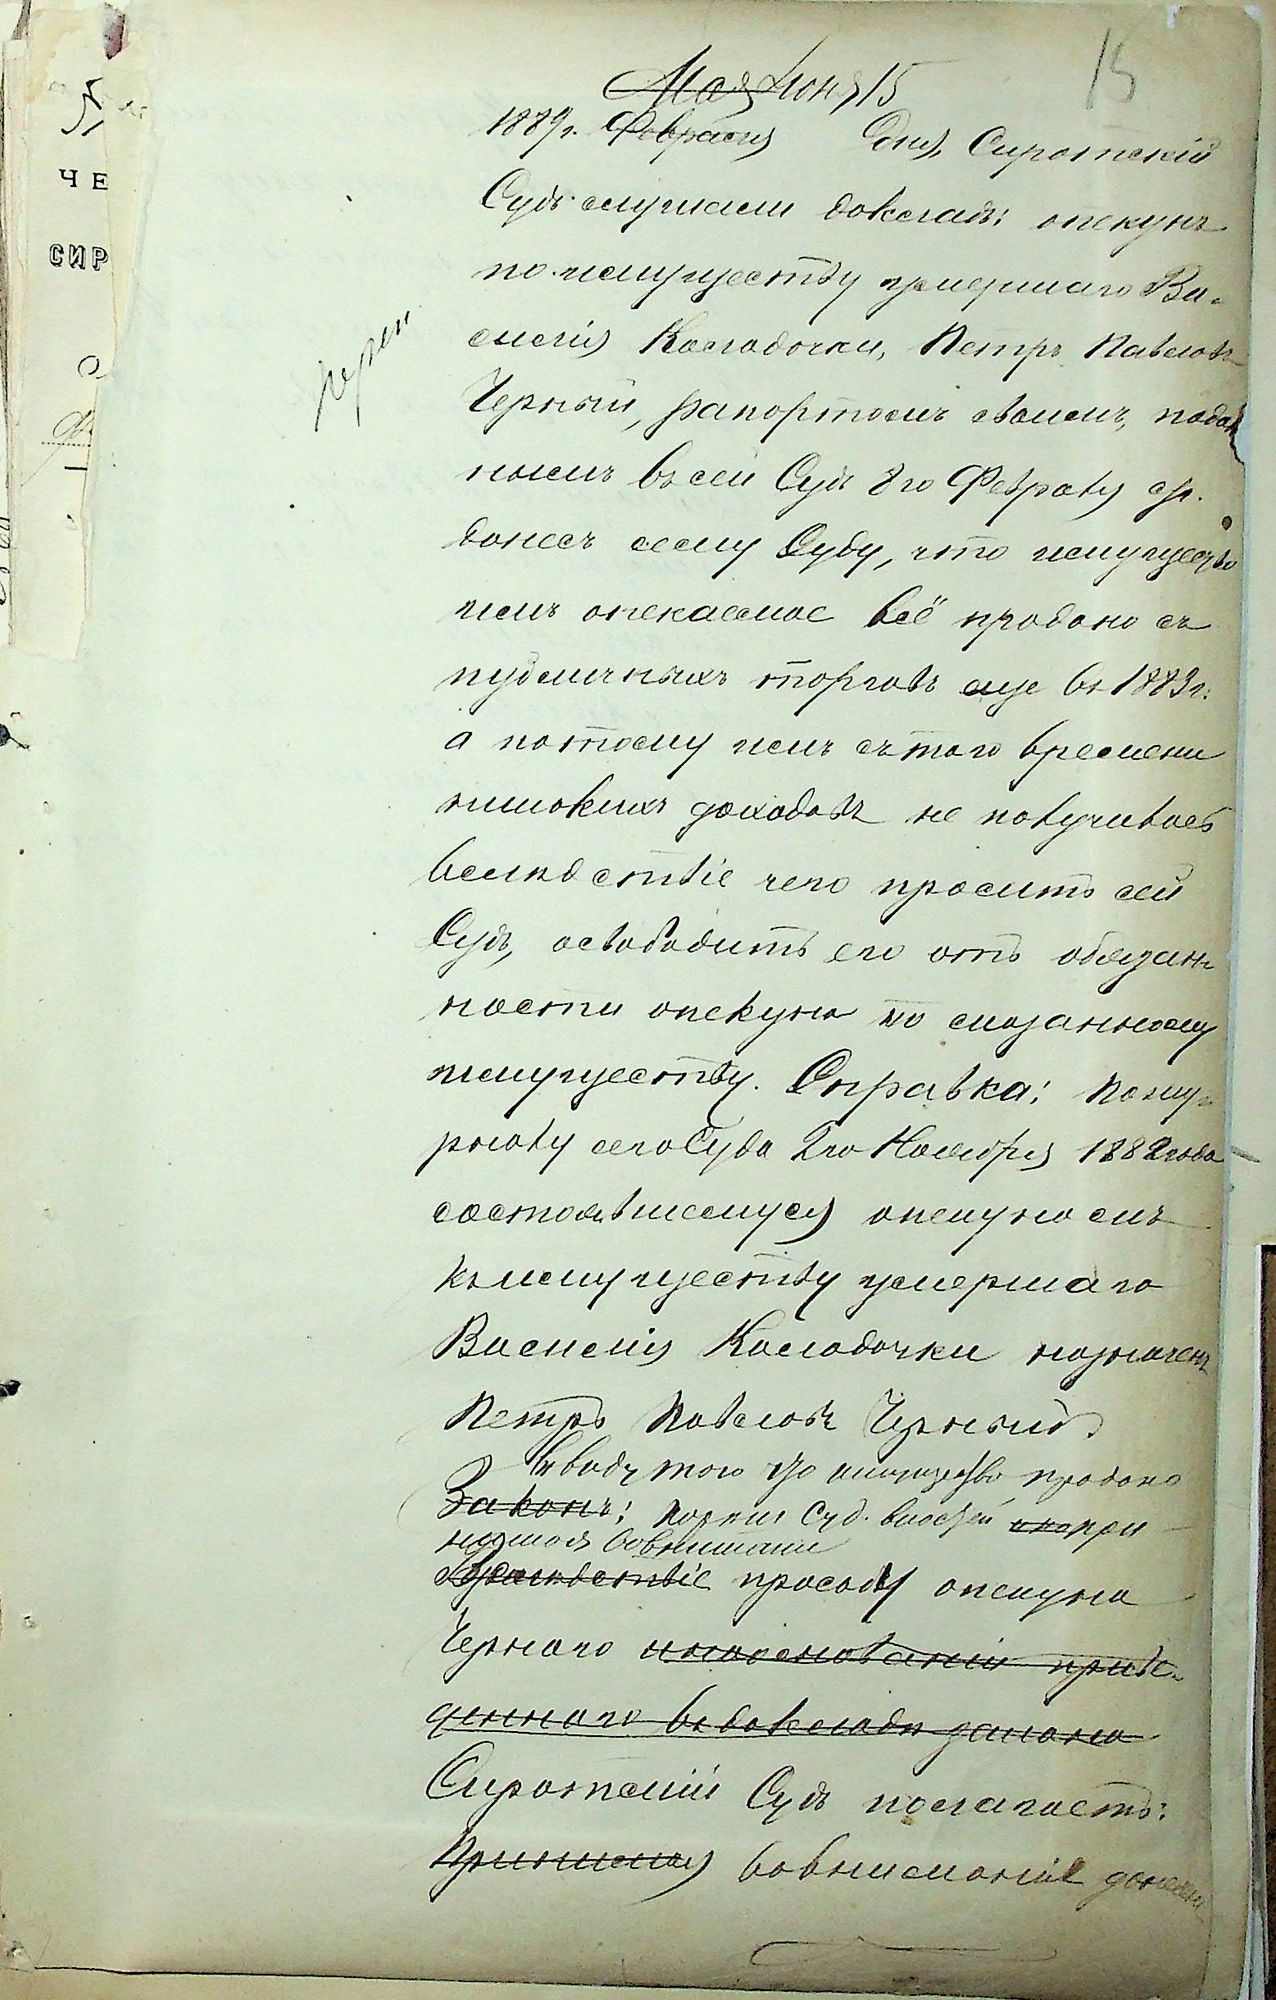 15
Мая Июня 15
1889 г. Февраля Дня, Сиротскій
Судъ слушали докладъ: опекунъ
по имуществу умершаго Ва-
силія Колодочки, Петръ Павловъ
Черный, рапортомъ своимъ, подан
нымъ въ сей Судъ 8го Февраля с.г.
донесъ сему Суду, что имущество
имъ опекаемое всё продано съ
публичныхъ торговъ еще въ 1883 г:
а потому имъ съ того времени
никакихъ доходовъ не получилось
вслѣдствіе чего проситъ сей
Судъ, освободить его отъ обязан-
ности опекуна по сказанному
имуществу. Справка: По жур-
налу сего Суда 2го Ноября 1882 года
состоявшемуся опекуномъ
къ имуществу умершаго
Василія Колодочки назначенъ
Петръ Павловъ Черный.
Ввиду того что имущество продано
Законъ: Суд. при
во вниманіе
просьбу опекуна
Чернаго на основаніи приве-
деннаго въ докладѣ закона
Сиротскій Судъ полагаетъ:
Принимая во вниманіе
Черн
ЧЕ
СИР